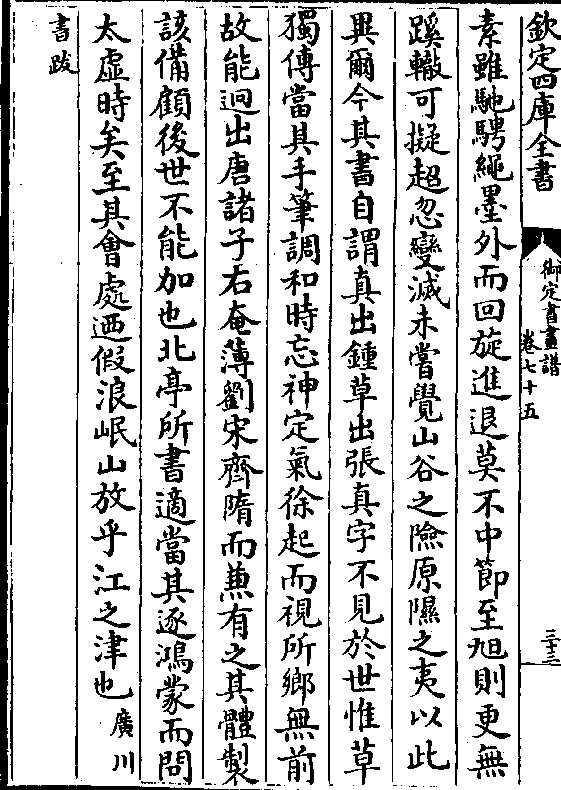 欽定四庫全書
御定書畫譜
卷七十五
三十三
素雖馳騁繩墨外而回旋進退莫不中節至旭則更無
蹊轍可擬超忽變滅未嘗覺山谷之險原隰之夷以此
異爾今其書自謂真出鍾草出張真字不見於世惟草
獨傳當其手筆調和時忘神定氣徐起而視所鄉無前
故能迥出唐諸子右奄薄劉宋齊隋而兼有之其體製
該備顧後世不能加也北亭所書適當其逐鴻蒙而問
太虛時矣至其會處迺假浪岷山放乎江之津也廣川
書跋